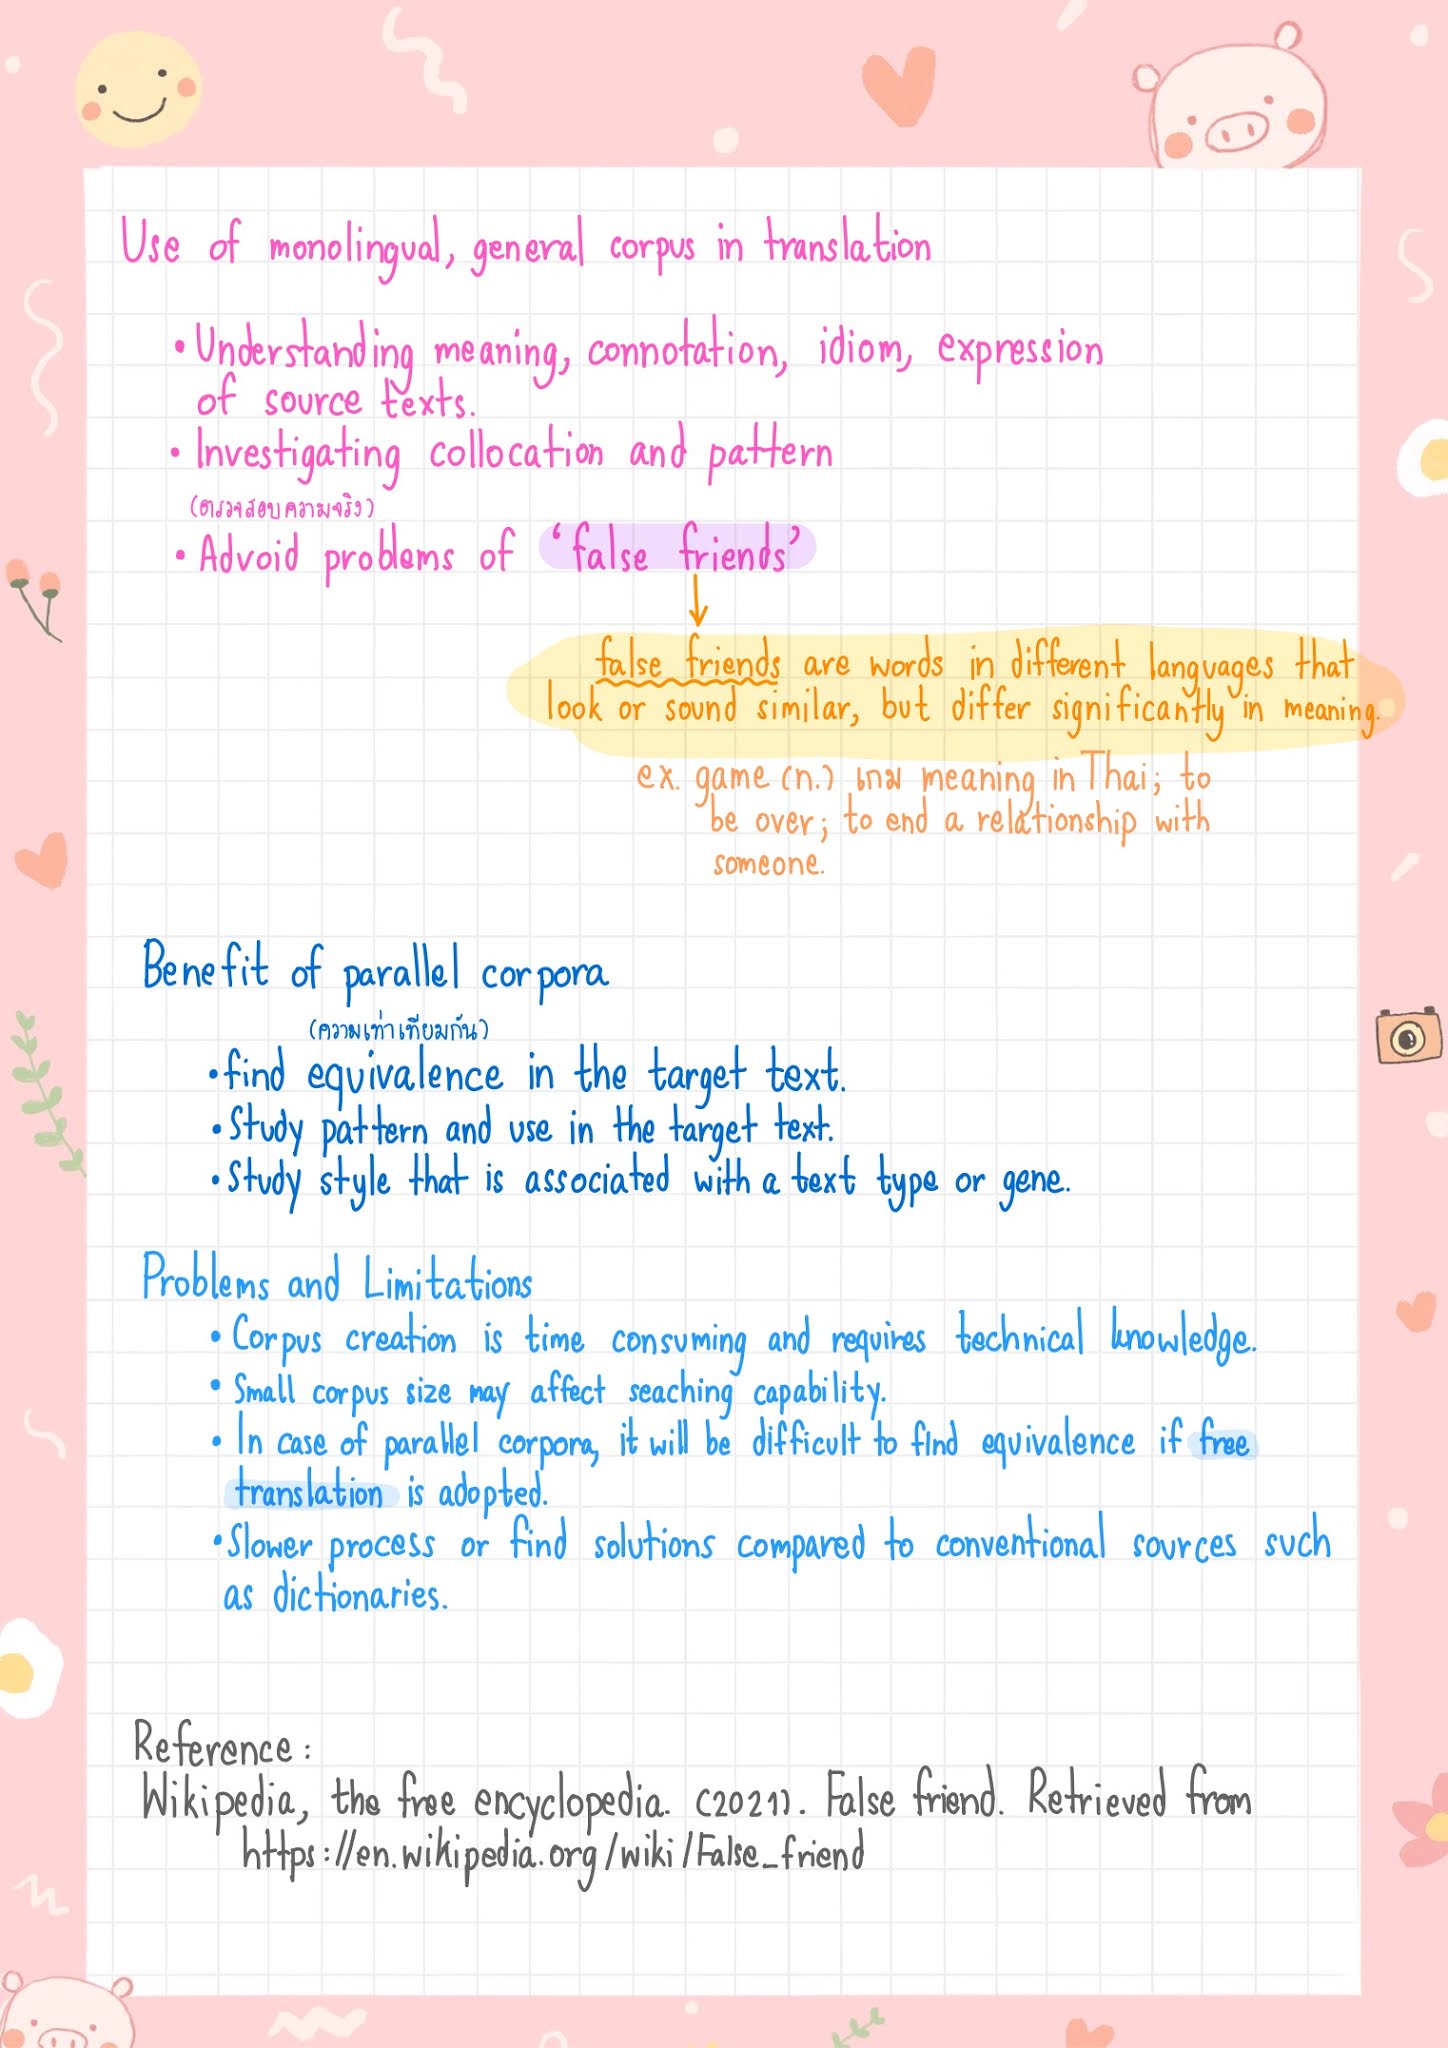 Use of monolingual, general corpus in translation
• Understanding meaning, connotation, idiom, expression
of source texts.
• Investigating collocation and pattern
(ตรวจสอบความจริง)
• Advoid problems of 'false friends'
false friends are words in different languages that
look or sound similar, but differ significantly in meaning.
ex. game (n.) เกม meaning in Thai; to
be over; to end a relationship with
someone.
Benefit of parallel corpora
(ความเท่าเทียมกัน)
• find equivalence in the target text.
• Study pattern and use in the target text.
• Study style that is associated with a text type or gene.
Problems and Limitations
• Corpus creation is time consuming and requires technical knowledge.
• Small corpus size may affect seaching capability.
• In case of parallel corpora, it will be difficult to find equivalence if free
translation is adopted.
• Slower process or find solutions compared to conventional sources such
as dictionaries.
Reference:
Wikipedia, the free encyclopedia. (2021). False friend. Retrieved from
https://en.wikipedia.org/wiki/False_friend